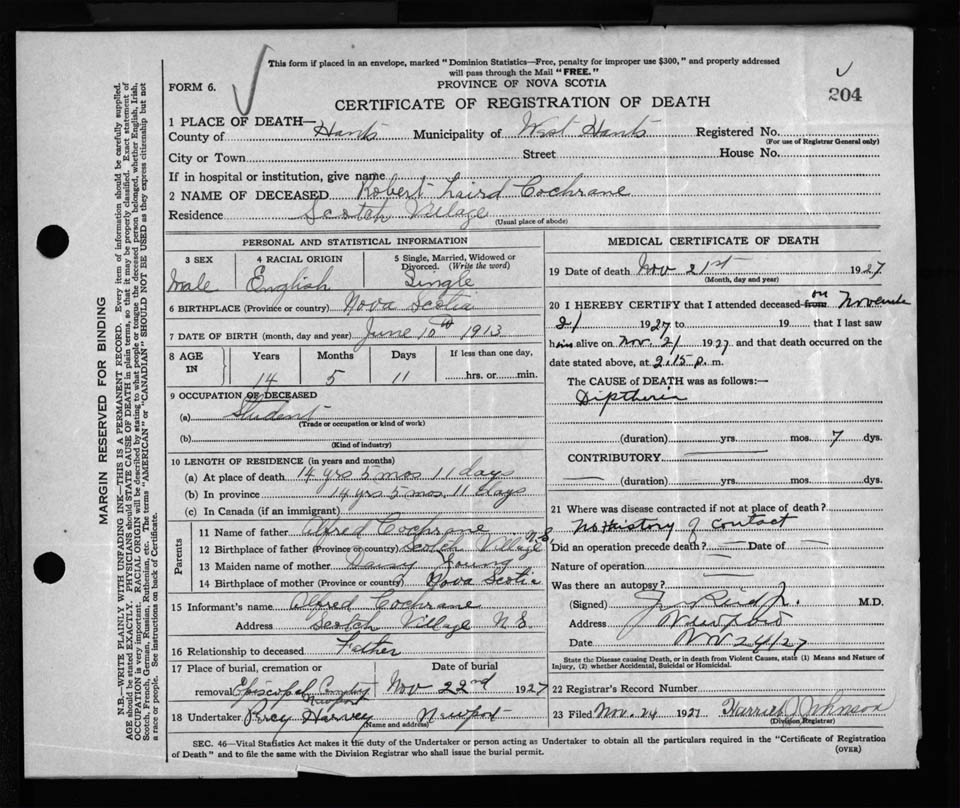 This form if placed in an envelope, marked "Dominion Statistics—Free, penalty for improper use $300," and properly addressed
will pass through the Mail "FREE."
FORM 6.
PROVINCE OF NOVA SCOTIA
204
CERTIFICATE OF REGISTRATION OF DEATH
1 PLACE OF DEATH—
County of Hants Municipality of West Hants Registered No.
(For use of Registrar General only)
City or Town Street House No.
If in hospital or institution, give name
2 NAME OF DECEASED Robert Laird Cochrane
Residence Scotch Village
(Usual place of abode)
PERSONAL AND STATISTICAL INFORMATION
3 SEX 4 RACIAL ORIGIN 5 Single, Married, Widowed or
Divorced. (Write the word)
Male English Single
6 BIRTHPLACE (Province or country) Nova Scotia
7 DATE OF BIRTH (month, day and year) June 10th 1913
8 AGE IN Years Months Days If less than one day,
14 5 11 hrs. or min.
9 OCCUPATION OF DECEASED
(a) Student
(Trade or occupation or kind of work)
(b)
(Kind of industry)
10 LENGTH OF RESIDENCE (in years and months)
(a) At place of death 14 yrs 5 mos 11 days
(b) In province 14 yrs 5 mos. 11 days
(c) In Canada (if an immigrant)
Parents
11 Name of father Alfred Cochrane
12 Birthplace of father (Province or country) Scotch Village N.S.
13 Maiden name of mother Daisy Young
14 Birthplace of mother (Province or country) Nova Scotia
15 Informant's name Alfred Cochrane
Address Scotch Village N.S.
16 Relationship to deceased Father
17 Place of burial, cremation or Date of burial
removal Episcopal Cemetery Newport Nov 22nd 1927
18 Undertaker Percy Harvey Newport
(Name and address)
MEDICAL CERTIFICATE OF DEATH
19 Date of death Nov 21st 1927
(Month, day and year)
20 I HEREBY CERTIFY that I attended deceased from on November
21 1927 to 19 that I last saw
him alive on Nov. 21 1927 and that death occurred on the
date stated above, at 2.15 p. m.
The CAUSE of DEATH was as follows:—
Diptheria
(duration) yrs. mos. 7 dys.
CONTRIBUTORY —
— (duration) yrs. mos. dys.
21 Where was disease contracted if not at place of death?
No History of contact
Did an operation precede death? — Date of —
Nature of operation —
Was there an autopsy? —
(Signed) M.D.
Address Newport
Date Nov 24/27
State the Disease causing Death, or in death from Violent Causes, state (1) Means and Nature of
Injury, (2) whether Accidental, Suicidal or Homicidal.
22 Registrar's Record Number
23 Filed Nov. 24 1927 Harriet J Johnson
(Division Registrar)
SEC. 46—Vital Statistics Act makes it the duty of the Undertaker or person acting as Undertaker to obtain all the particulars required in the "Certificate of Registration
of Death" and to file the same with the Division Registrar who shall issue the burial permit.
(OVER)
MARGIN RESERVED FOR BINDING
N.B.—WRITE PLAINLY WITH UNFADING INK—THIS IS A PERMANENT RECORD. Every item of information should be carefully supplied.
AGE should be stated EXACTLY. PHYSICIANS should STATE CAUSE OF DEATH in plain terms, so that it may be properly classified. Exact statement of
OCCUPATION is very important. RACIAL ORIGIN will be described by stating to what people or tongue the deceased person belonged, whether English, Irish,
Scotch, French, German, Russian, Ruthenian, etc. The terms "AMERICAN" or "CANADIAN" SHOULD NOT BE USED as they express citizenship but not
a race or people. See instructions on back of Certificate.